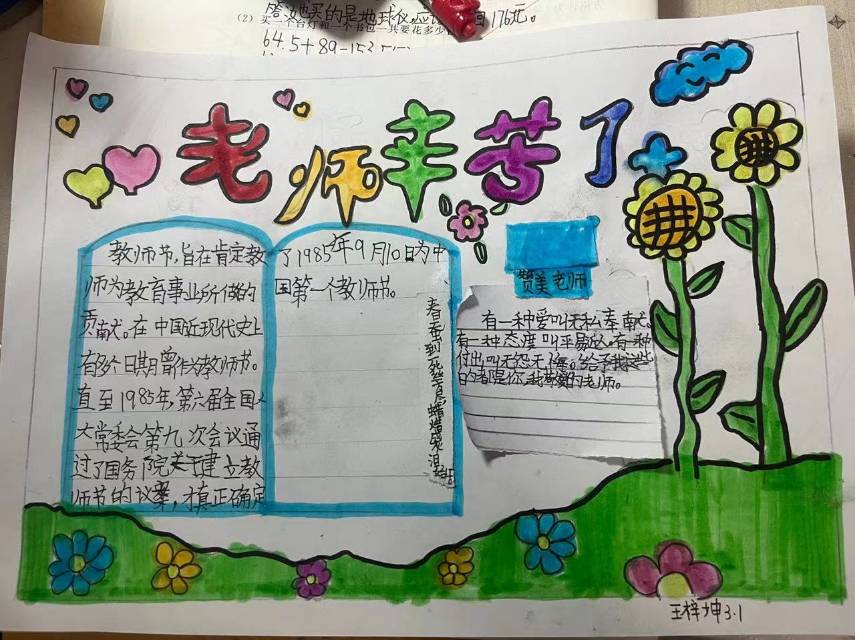 答:她买的是地球仪。应该找回176元。
(2)买一个台灯和一个书包一共要花多少
64.5+89=153.5(元)
老师辛苦了
教师节,旨在肯定教
师为教育事业所做的
贡献。在中国近现代史上
有多个日期曾作为教师节。
直至1985年,第六届全国人
大常委会第九次会议通
过了国务院关于建立教
师节的议案,才真正确定
了1985年9月10日为中
国第一个教师节。
春蚕到死丝方尽,蜡炬成泪始干
赞美老师
有一种爱叫无私奉献。
有一种态度叫平易近人。有一种
付出叫无怨无悔。给予我这些
的都是你,我敬爱的老师。
王梓坤3.1